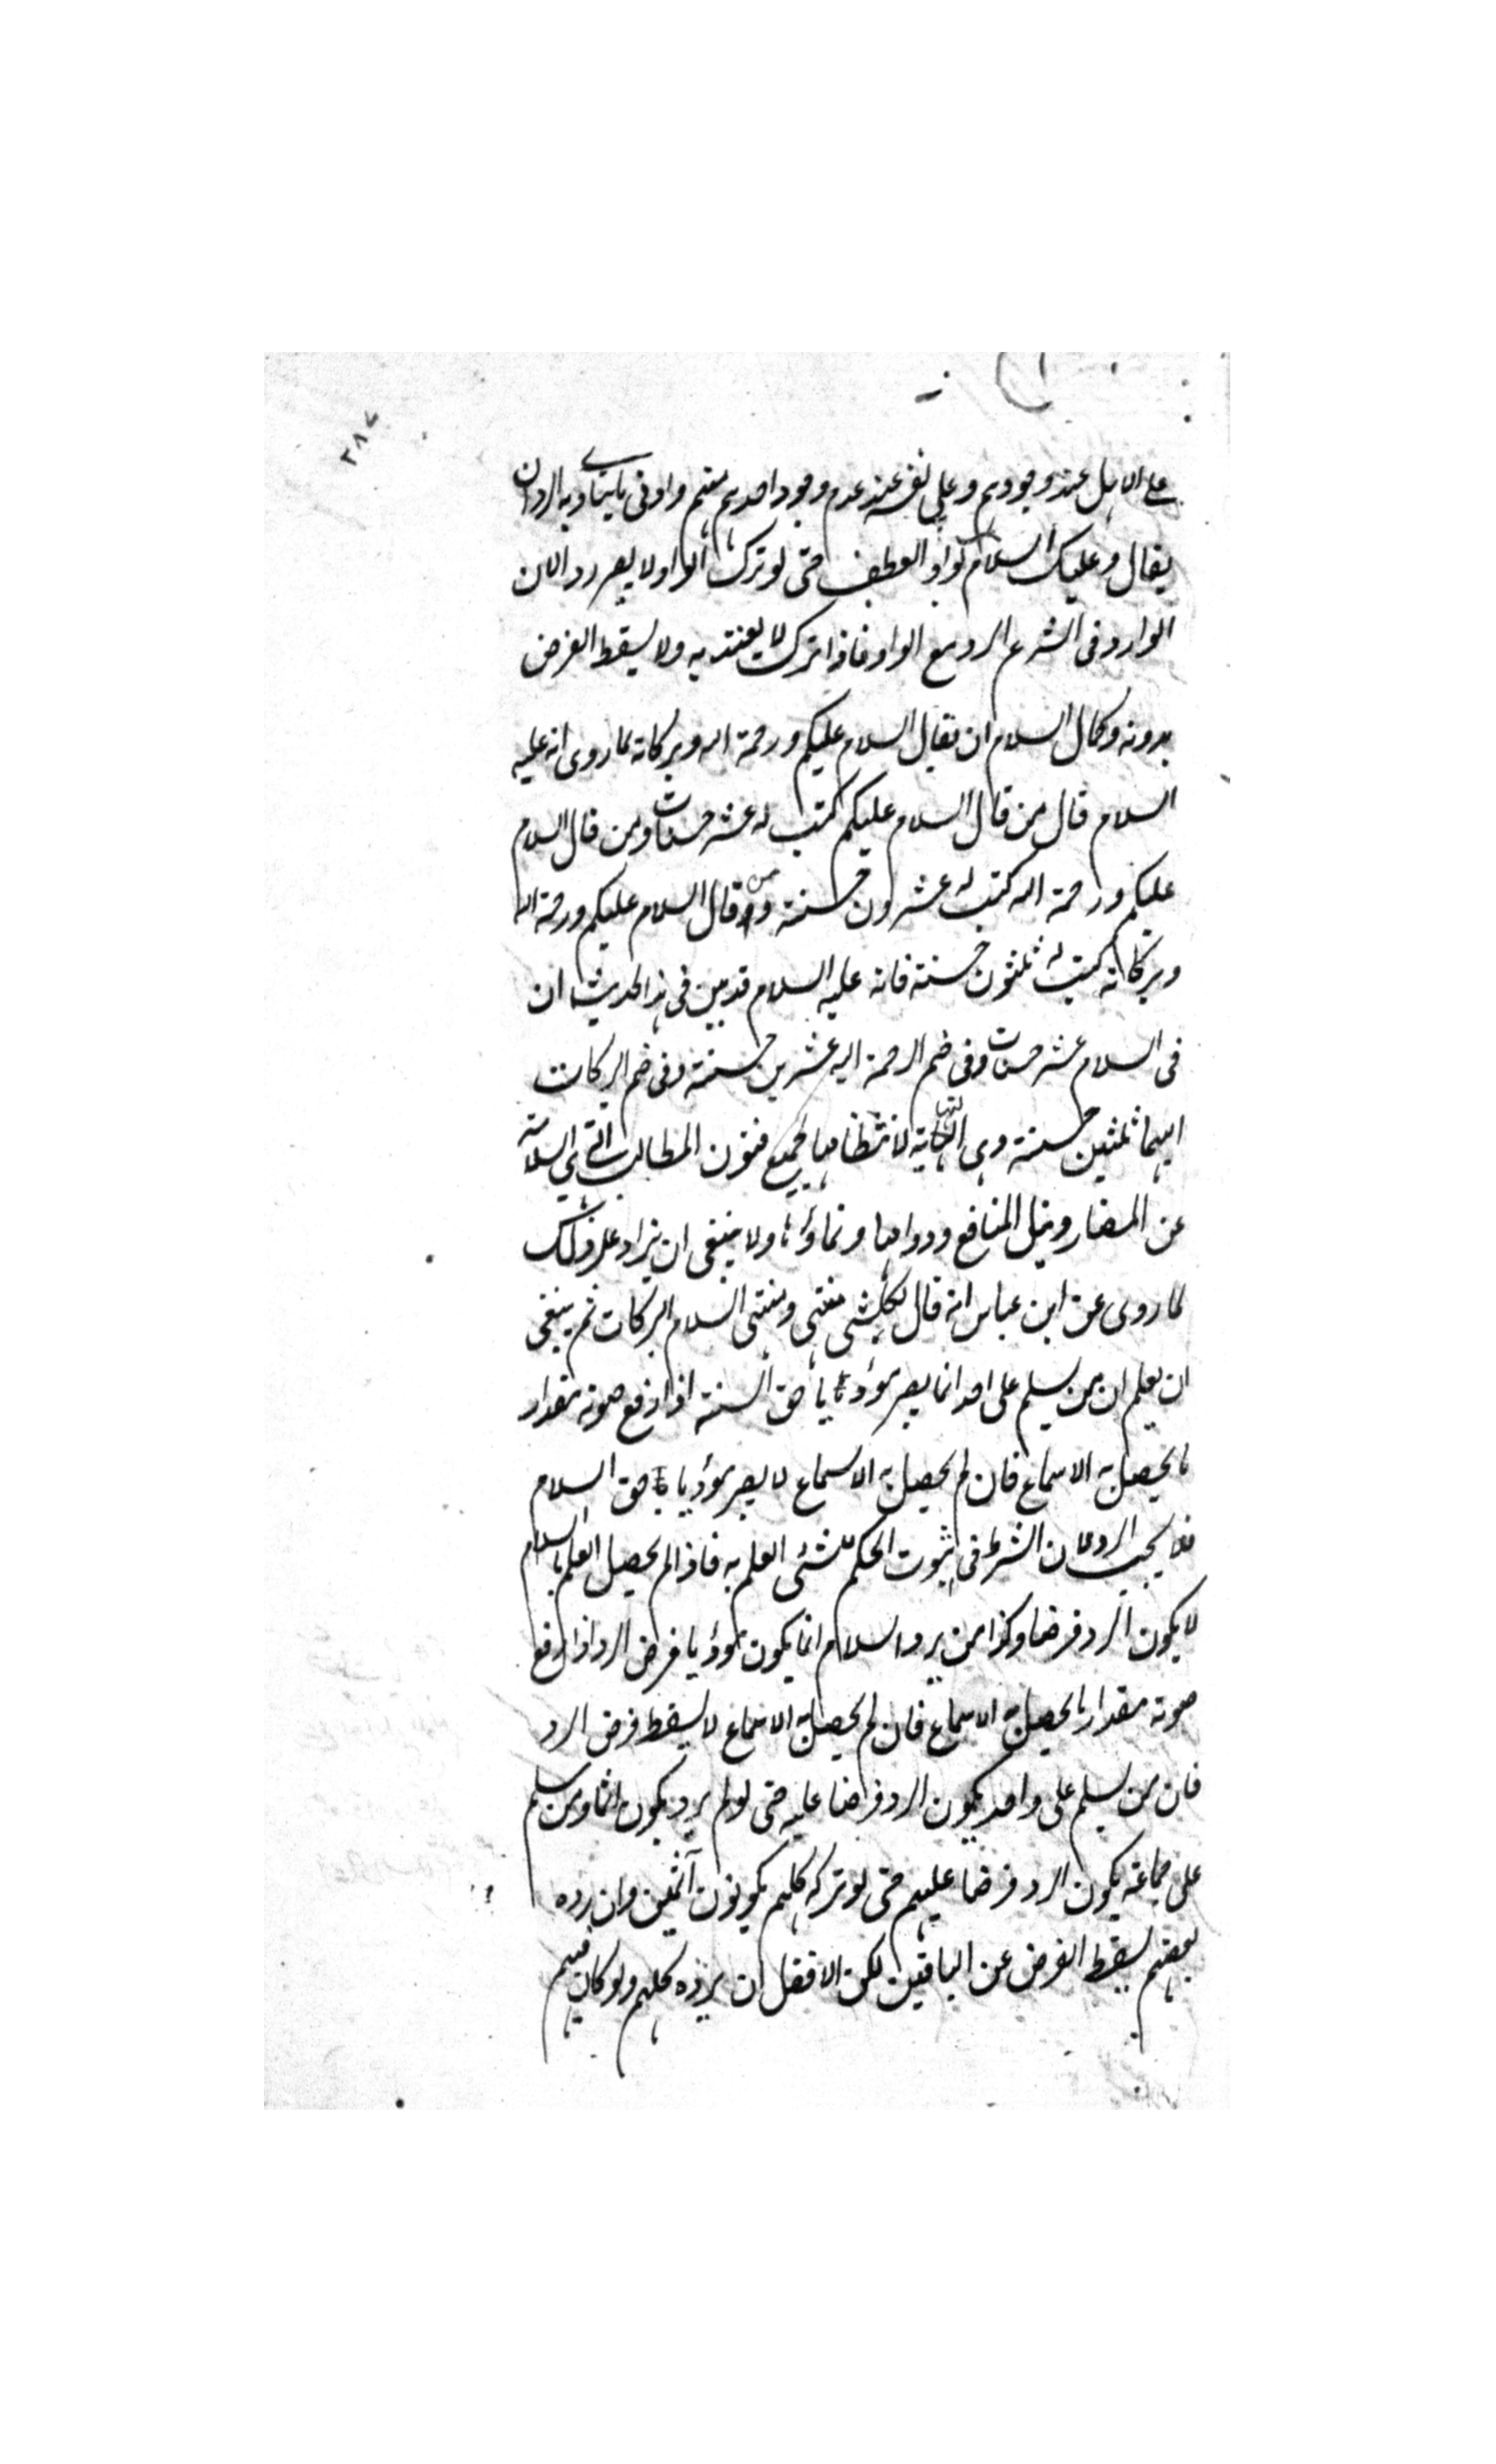 ٢٨٧
على الاهل عند وجودهم وعلى نفسه عند عدم وجود احدهم منهم وادنى ما يتادى به الرد ان
يقال وعليك السلام بواو العطف حتى لو ترك الواو لا يصير ردا لان
الوارد فى الشرع الرد مع الواو فاذا ترك لا يعتد به ولا يسقط الفرض
بدونه وكمال السلام ان يقال السلام عليكم ورحمة الله وبركاته لما روى انه عليه
السلام قال من قال السلام عليكم كتب له عشر حسنات ومن قال السلام
عليكم ورحمة الله كتب له عشرون حسنة ومن قال السلام عليكم ورحمة الله
وبركاته كتب له ثلثون حسنة فانه عليه السلام قد بين فى هذا الحديث ان
فى السلام عشر حسنات وفى ضم الرحمة اليه عشرين حسنة وفى ضم البركات
اليهما ثلثين حسنة وهى النهاية لانتظامها لجميع فنون المطالب التى هى السلامة
عن المضار ونيل المنافع ودوامها ونماؤها ولا ينبغى ان يزاد على ذلك
لما روى عن ابن عباس انه قال لكل شئ منتهى ومنتهى السلام البركات ثم ينبغى
ان يعلم ان من يسلم على احد انما يصير مؤديا حق السنة اذا رفع صوته مقدار
ما يحصل به الاسماع فان لم يحصل به الاسماع لا يصير مؤديا حق السلام
فلا يجب الرد لان الشرط فى ثبوت الحكم للشئ العلم به فاذا لم يحصل العلم بالسلام
لا يكون الرد فرضا وكذا من يرد السلام انما يكون مؤديا فرض الرد اذا رفع
صوته مقدار ما يحصل به الاسماع فان لم يحصل به الاسماع لا يسقط فرض الرد
فان من يسلم على واحد يكون الرد فرضا عليه حتى لو لم يرد يكون اثما ومن سلم
على جماعة يكون الرد فرضا عليهم حتى لو تركه كلهم يكونون آثمين وان رده
بعضهم يسقط الفرض عن الباقين لكن الافضل ان يرده كلهم ولو كان فيهم